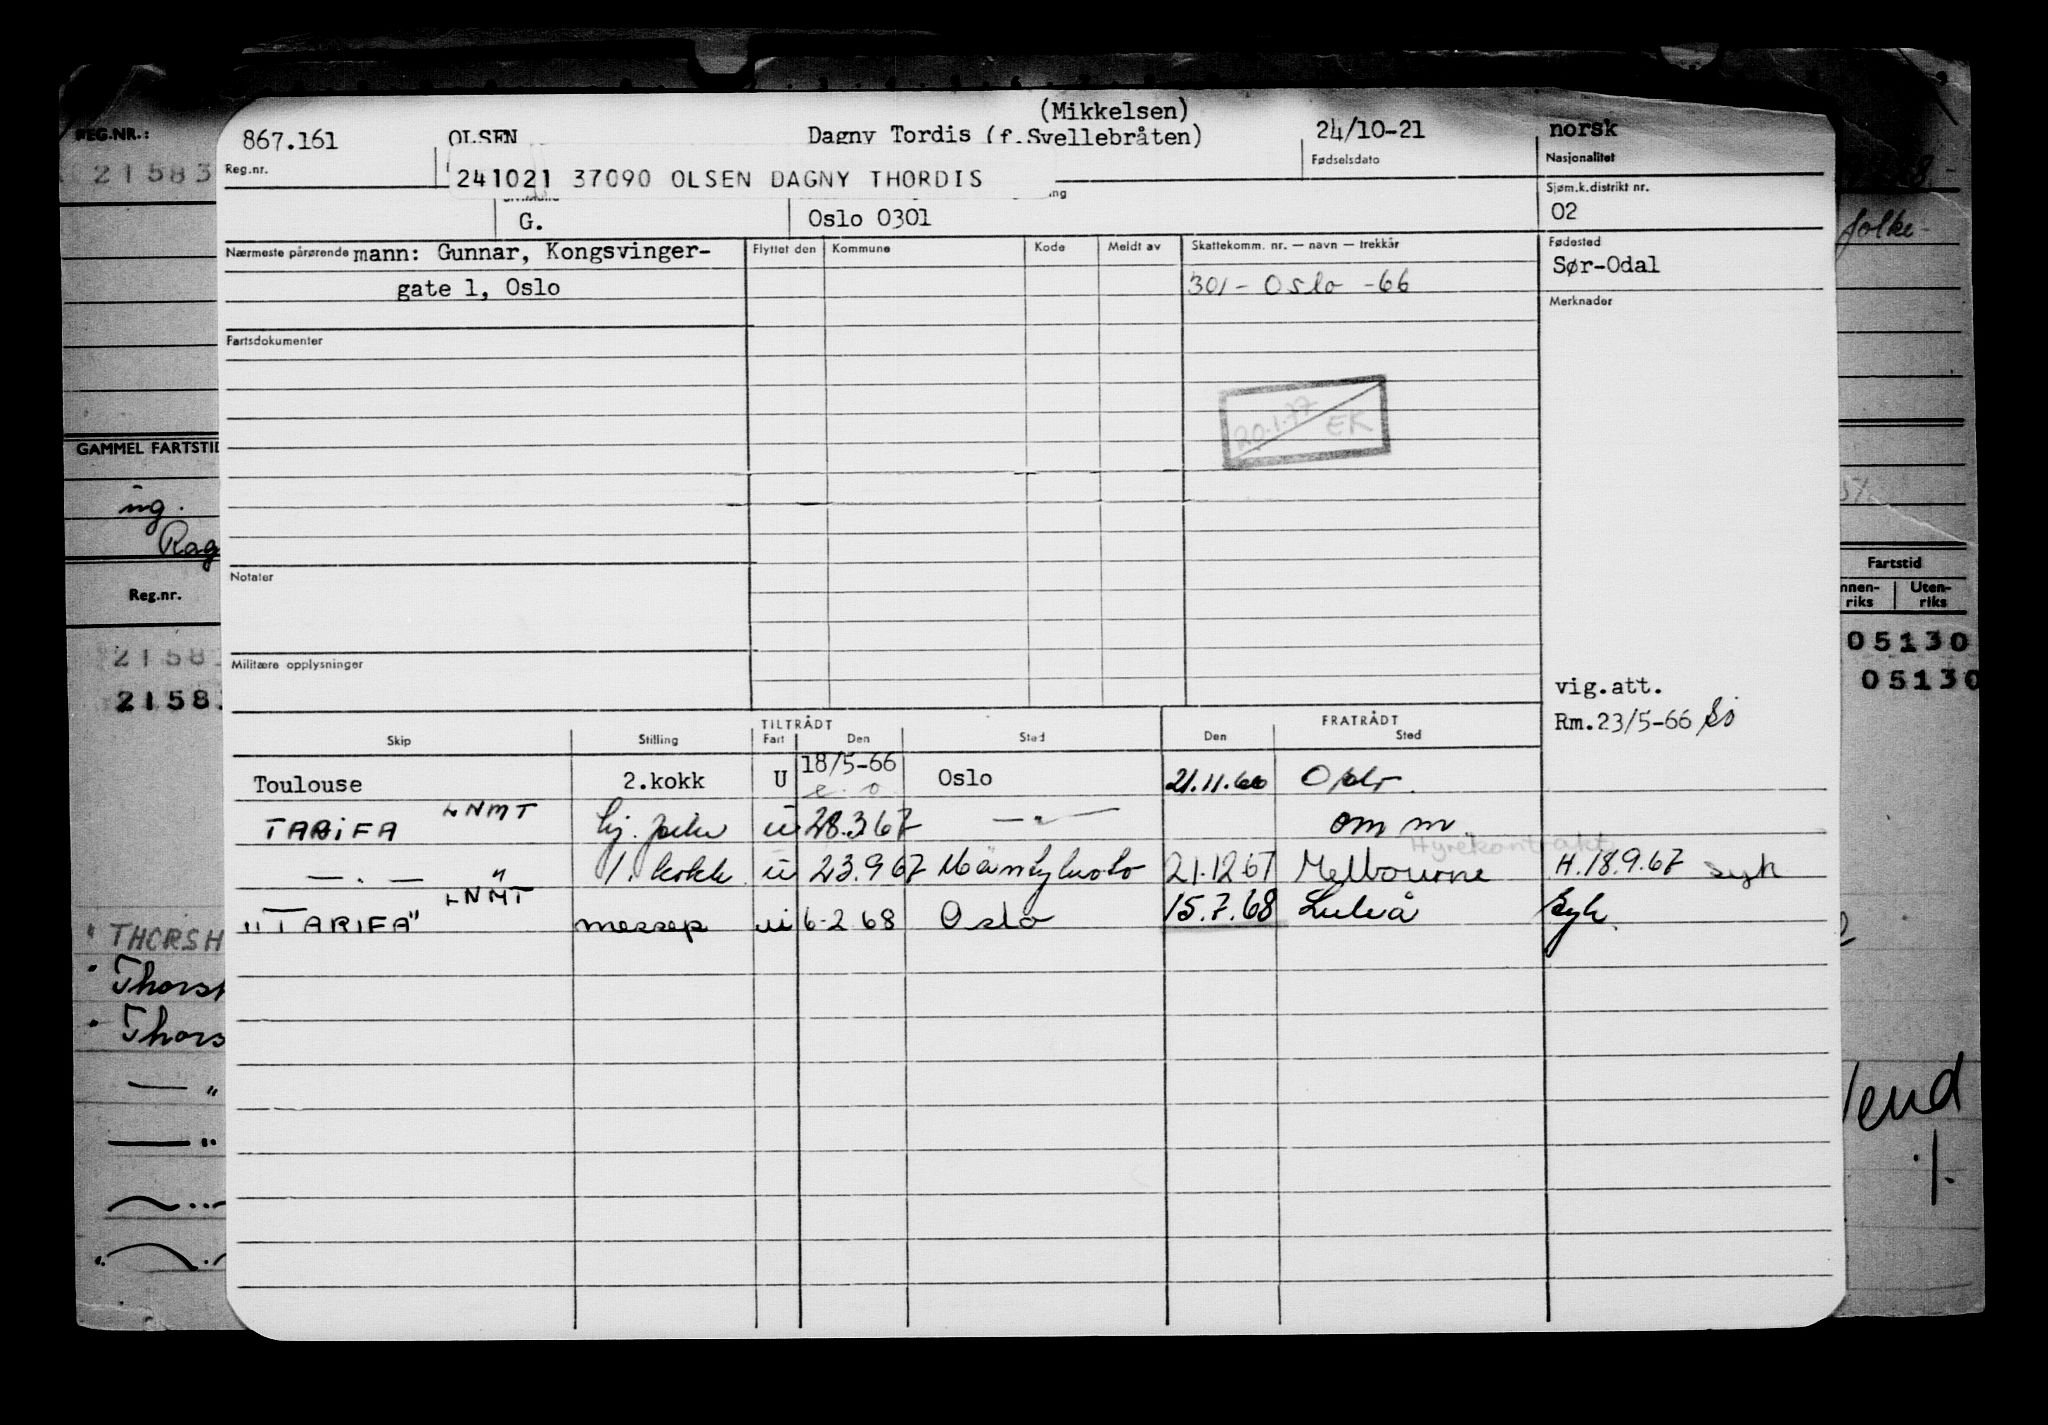 (Mikkelsen)
867.161 OLSEN Dagny Tordis (f.Svellebråten) 24/10-21 norsk
Reg.nr. Fødselsdato Nasjonalitet
241021 37090 OLSEN DAGNY THORDIS
Sjøm.k.distrikt nr.
G. Oslo 0301 02
Nærmeste pårørende mann: Gunnar, Kongsvinger- Flyttet den Kommune Kode Meldt av Skattekomm. nr. — navn — trekkår Fødested
Sør-Odal
gate 1, Oslo 301 - Oslo - 66
Merknader
Fartsdokumenter
20.1.77 EK
Notater
Militære opplysninger
vig.att.
Rm.23/5-66
TILTRÅDT FRATRÅDT
Skip Stilling Fart Den Sted Den Sted
Toulouse 2.kokk U 18/5-66 Oslo 21.11.66 Oslo.
e. o
TARIFA LNMT u 28.3.67 — " — om m
Hyrekontrakt
— . — " 1. kokk u 23.9.67 Mäntyluoto 21.12.67 Melbourne H.18.9.67 syk
"TARIFA" LNMT messep u 6-2 68 Oslo 15.7.68 Luleå Syk.
REG.NR.:
21583
GAMMEL FARTSTID
ing.
Rag
Reg.nr.
2158
21583
" THORSH
" Thorsh
" Thors
— "
— "
folke-
Fartstid
nnen-
riks
Uten-
riks
05130
05130